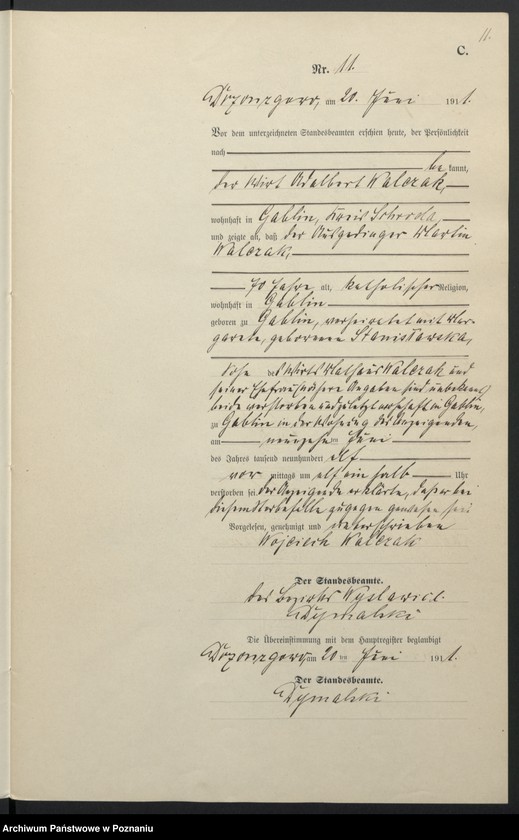 11.
C.
Nr. 11.
am 20. Juni 1911.
Vor dem unterzeichneten Standesbeamten erschien heute, der Persönlichkeit
nach
be kannt,
der Wirt Adalbert Walczak,
wohnhaft in Gablin, Kreis Schroda,
und zeigte an, daß der Ausgedinger Martin
Walczak,
70 Jahre alt, katholischer Religion,
wohnhaft in Gablin
geboren zu Gablin, verheiratet mit Mar-
garete, geborenen Stanisławska,
Sohn des Wirts Walczak und
seiner Ehefrau, nähere Angaben sind unbekannt,
beide verstorben und zuletzt wohnhaft in Gablin,
zu Gablin in der Wohnung des Anzeigenden,
am neunzehnten Juni
des Jahres tausend neunhundert elf
vor mittags um elf ein halb Uhr
verstorben sei. Der Anzeigende erklärte, daß er bei
diesem Sterbefalle zugegen gewesen sei.
Vorgelesen, genehmigt und unterschrieben
Wojciech Walczak
Der Standesbeamte.
des Bezirks
Dymalski
Die Übereinstimmung mit dem Hauptregister beglaubigt
am 20 ten Juni 1911.
Der Standesbeamte.
Dymalski
Archiwum Państwowe w Poznaniu